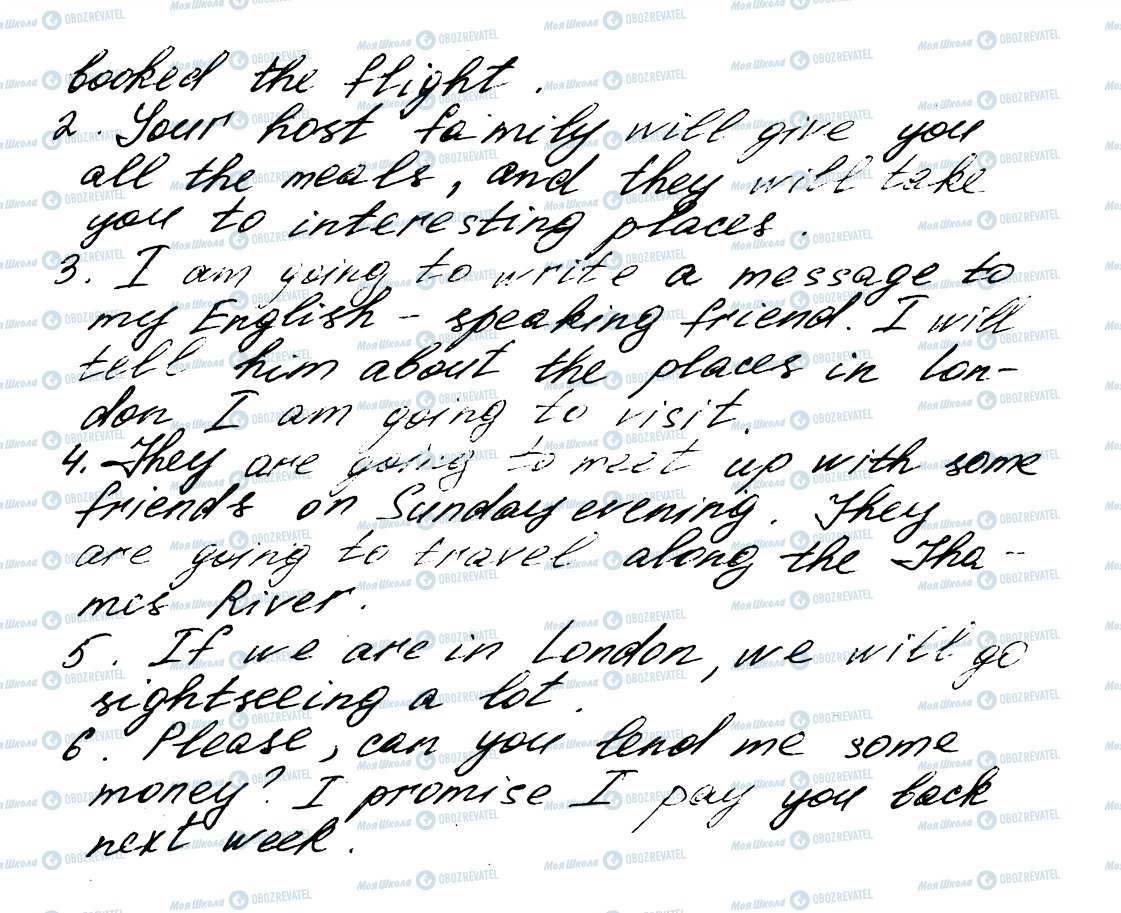 booked the flight.
2. Your host family will give you
all the meals, and they will take
you to interesting places.
3. I am going to write a message to
my English - speaking friend. I will
tell him about the places in Lon-
don I am going to visit.
4. They are going to meet up with some
friends on Sunday evening. They
are going to travel along the Tha-
mes River.
5. If we are in London, we will go
sightseeing a lot.
6. Please, can you lend me some
money? I promise I pay you back
next week.
Моя Школа OBOZREVATEL